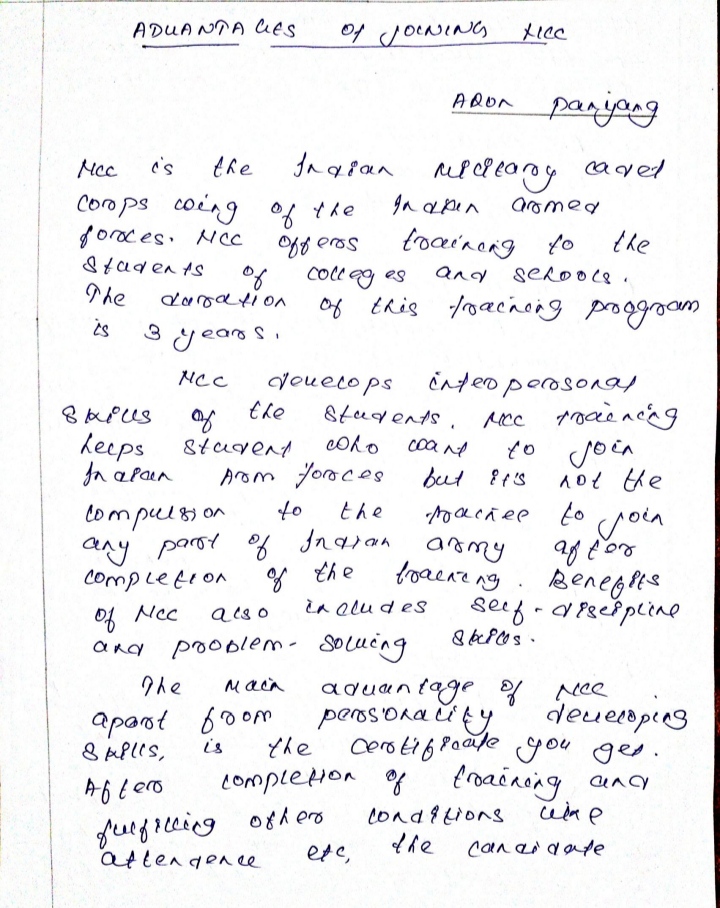 ADVANTAGES OF JOINING NCC
ARON Panyang
NCC is the Indian military cadet
corps wing of the Indian armed
forces. NCC offers training to the
students of colleges and schools.
The duration of this training program
is 3 years.
NCC develops interpersonal
skills of the students. NCC training
helps student who want to join
Indian Arm forces but it's not the
compulsion to the trainee to join
any part of Indian army after
completion of the training. Benefits
of NCC also includes self-discipline
and problem-solving skills.
The main advantage of NCC
apart from personality developing
skills, is the certificate you get.
After completion of training and
fulfilling other conditions like
attendence etc, the candidate